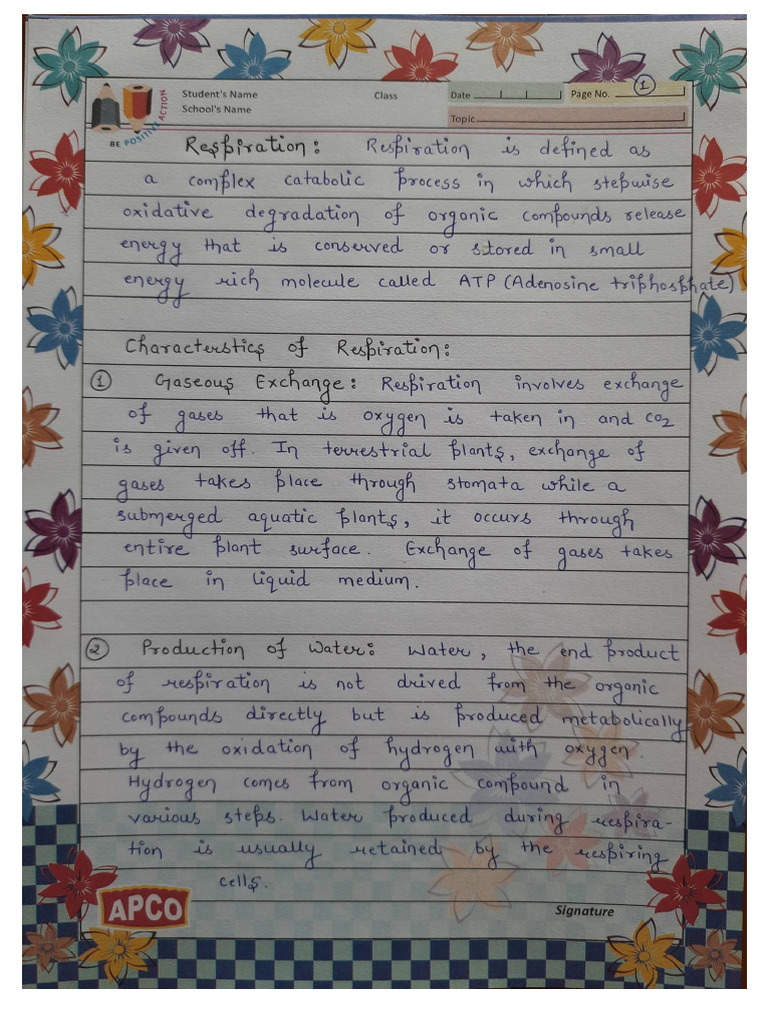 Student's Name Class Date Page No. 1
School's Name
Topic
BE POSITIVE ACTION
Respiration: Respiration is defined as
a complex catabolic process in which stepwise
oxidative degradation of organic compounds release
energy that is conserved or stored in small
energy rich molecule called ATP (Adenosine triphosphate)
Characterstics of Respiration:
1 Gaseous Exchange: Respiration involves exchange
of gases that is oxygen is taken in and CO2
is given off. In terrestrial plants, exchange of
gases takes place through stomata while a
submerged aquatic plants, it occurs through
entire plant surface. Exchange of gases takes
place in liquid medium.
2 Production of Water: Water, the end product
of respiration is not drived from the organic
compounds directly but is produced metabolically
by the oxidation of hydrogen with oxygen.
Hydrogen comes from organic compound in
various steps. Water produced during respira-
tion is usually retained by the respiring
cells.
APCO
Signature